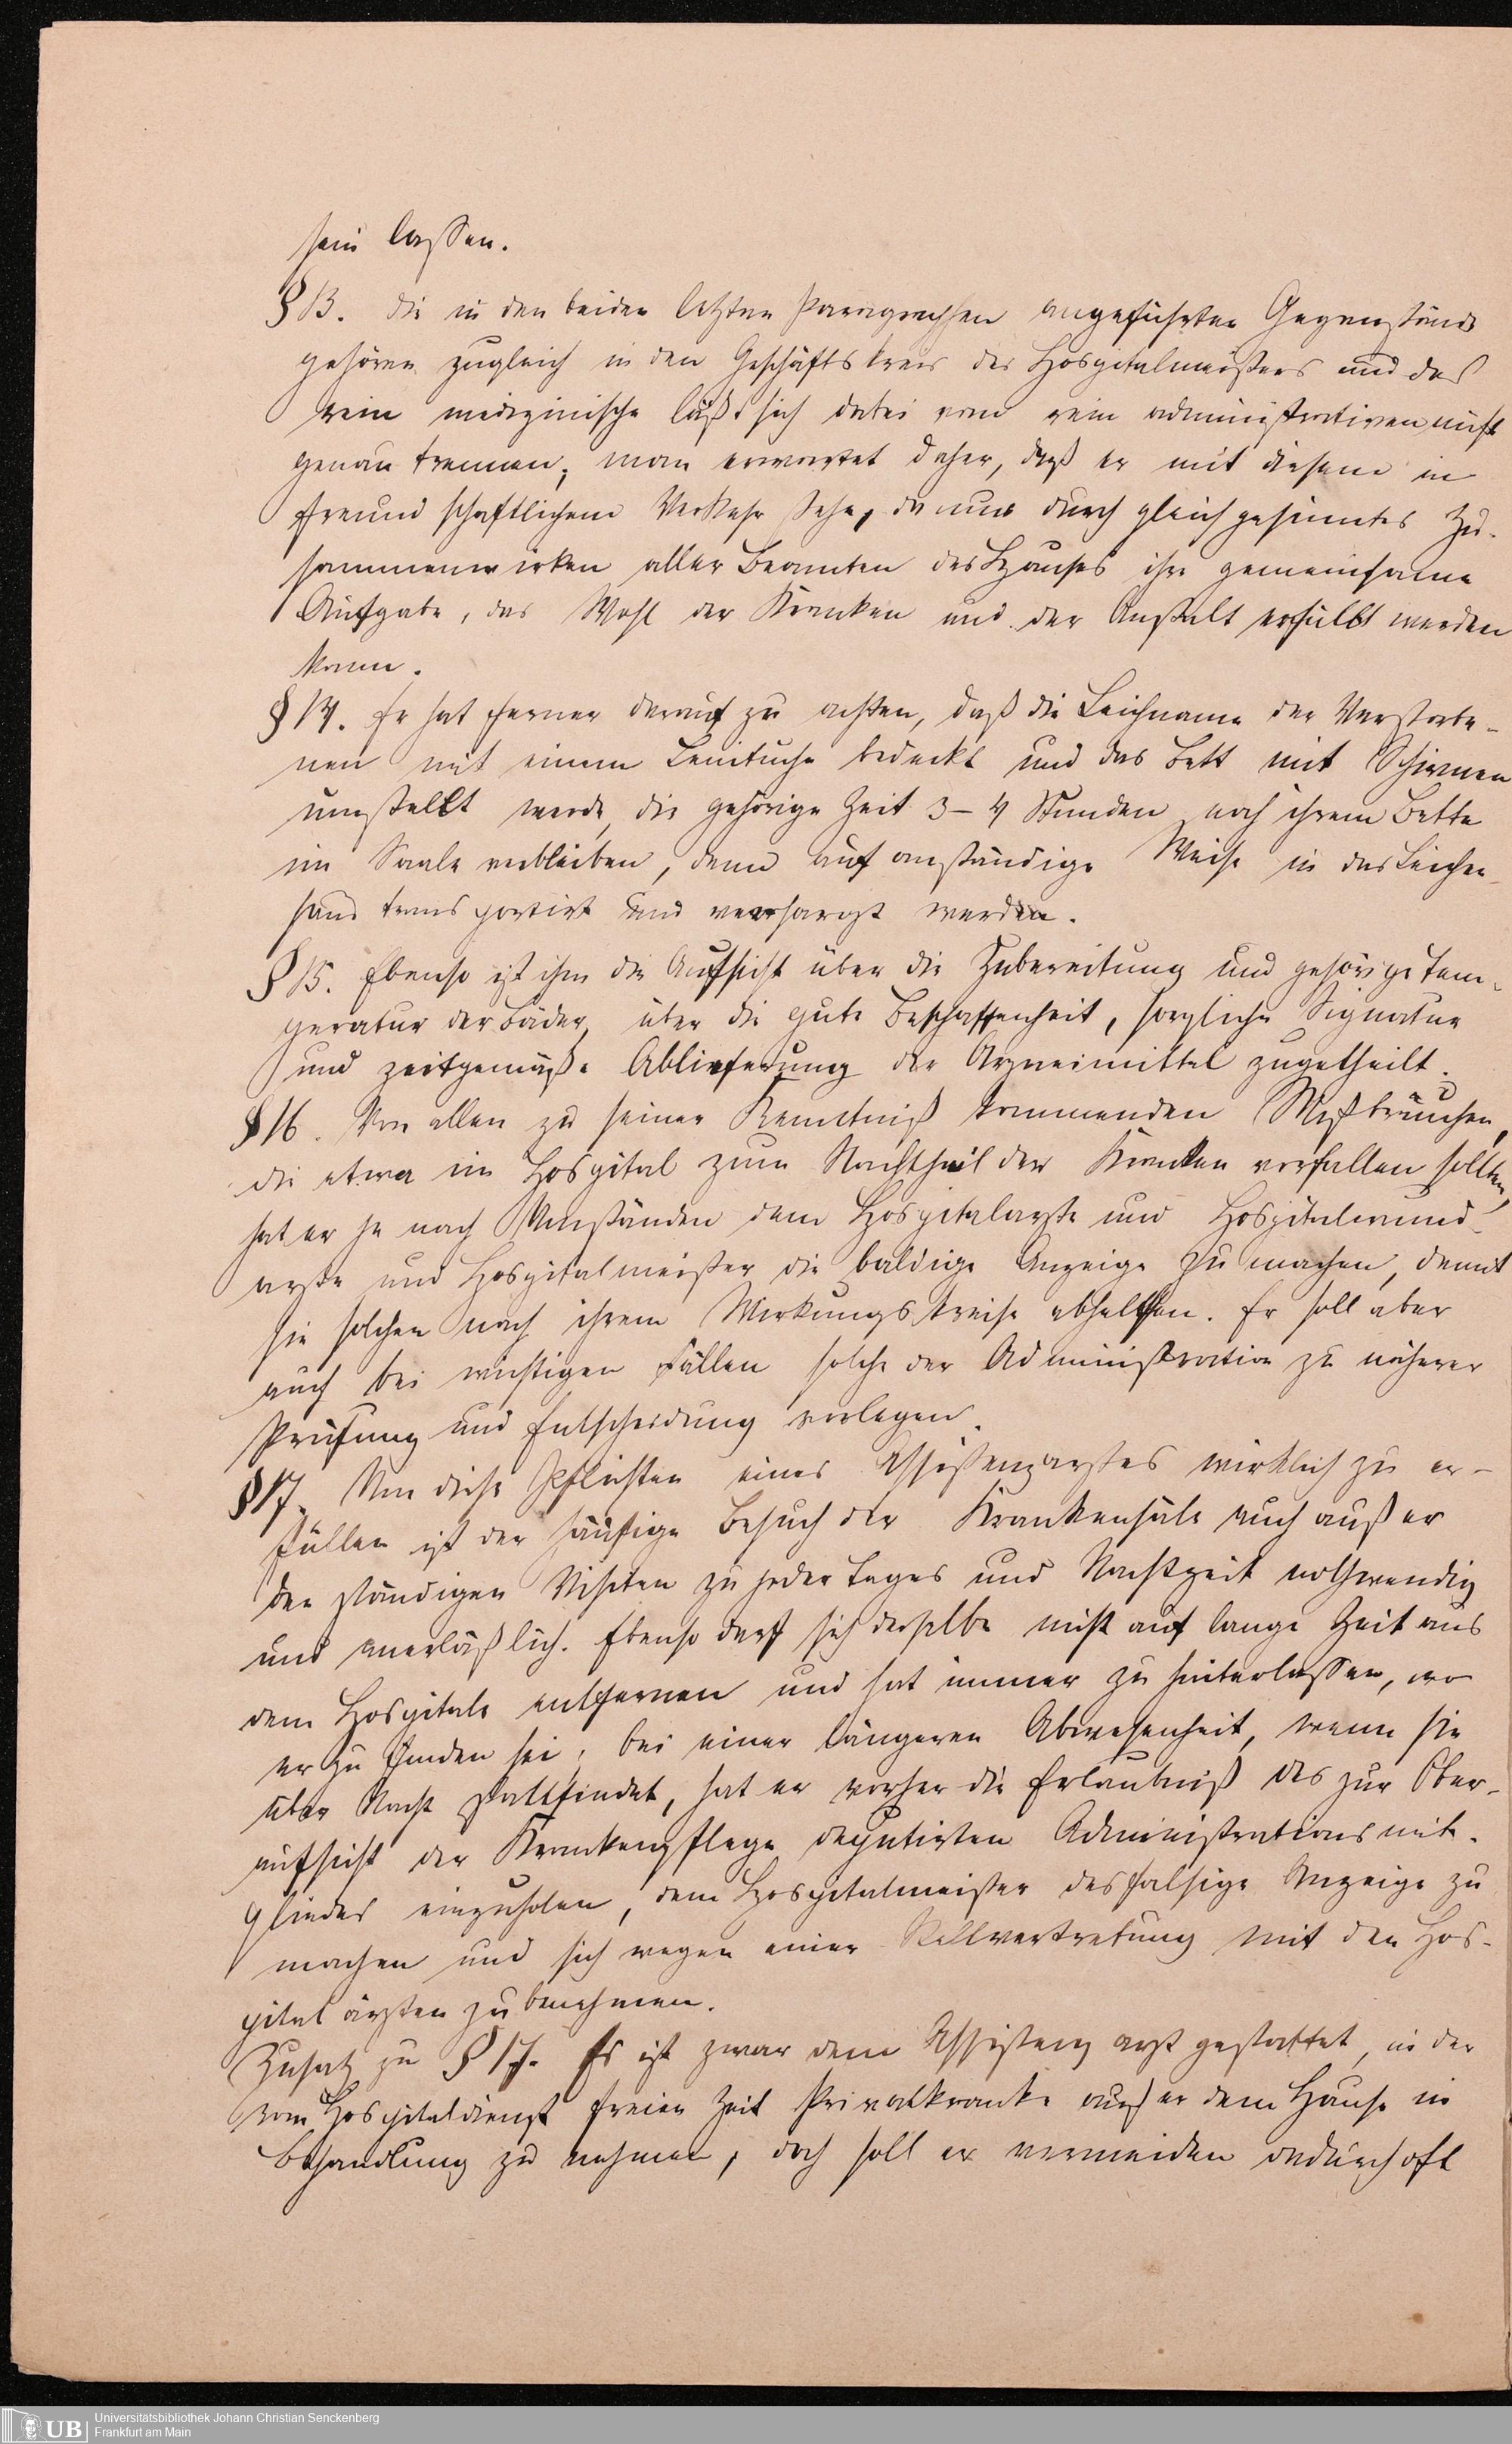 sein lassen.
§ 13. Die in den beiden letzten Paragraphen angeführten Gegenstände
gehören zugleich in den Geschäftskreis des Hospitalmeisters und das
rein medizinische läßt sich dabei vom rein administrativen nicht
genau trennen; man erwartet daher, daß er mit diesem in
freundschaftlichem Verkehr stehe, da nur durch gleichgesinntes Zu-
sammenwirken aller Beamten des Hauses ihre gemeinsame
Aufgabe, das Wohl der Kranken und der Anstalt erfüllt werden
kann.
§ 14. Er hat ferner darauf zu achten, daß die Leichname der Verstorbe-
nen mit einem Leintuche bedeckt und das Bett mit Schirmen
umstellt werde, die gehörige Zeit 3–4 Stunden noch ihrem Bette
im Saale verbleiben, dann auf anständige Weise in das Leichen-
haus transportirt und versargt werden.
§ 15. Ebenso ist ihm die Aufsicht über die Zubereitung und gehörige Tem-
peratur der Bäder, über die gute Beschaffenheit, sorgliche Signatur
und zeitgemäße Ablieferung der Arzneimittel zugetheilt.
§ 16. Von allen zu seiner Kenntniß kommenden Mißbräuchen,
die etwa im Hospital zum Nachtheil der Kranken vorfallen sollten,
hat er je nach Umständen dem Hospitalarzte und Hospitalwund-
arzte und Hospitalmeister die baldige Anzeige zu machen, damit
sie solchen nach ihrem Wirkungskreise abhelfen. Er soll aber
auch bei wichtigen Fällen solche der Administration zu näherer
Prüfung und Entscheidung vorlegen.
§ 17. Um diese Pflichten eines Assistenzarztes wirklich zu er-
füllen ist der häufige Besuch der Krankensäle auch außer
den ständigen Visiten zu jeder Tages und Nachtzeit nothwendig
und unerläßlich. Ebenso darf sich derselbe nicht auf lange Zeit aus
dem Hospitale entfernen und hat immer zu hinterlassen, wo
er zu finden sei; bei einer längeren Abwesenheit, wenn sie
über Nacht stattfindet, hat er vorher die Erlaubniß des zur Ober-
aufsicht der Krankenpflege deputirten Administrationsmit-
gliedes einzuholen, dem Hospitalmeister desfalsige Anzeige zu
machen und sich wegen einer Stellvertretung mit den Hos-
pitalärzten zu benehmen.
Zusatz zu § 17. Es ist zwar dem Assistenzarzt gestattet, in der
vom Hospitaldienst freien Zeit Privatkranke außer dem Hause in
Behandlung zu nehmen, doch soll er vermeiden dadurch oft
Universitätsbibliothek Johann Christian Senckenberg
Frankfurt am Main
UB